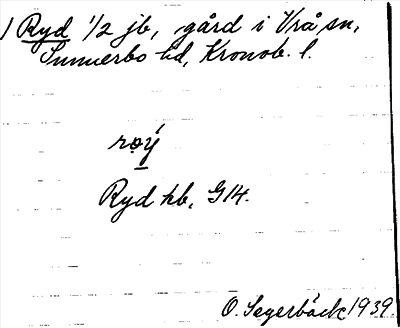 1 Ryd 1/2 jb, gård i Vrå sn,
Sunnerbo hd, Kronob. l.
Ryd hb, G14.
O. Segerbäck 1939.